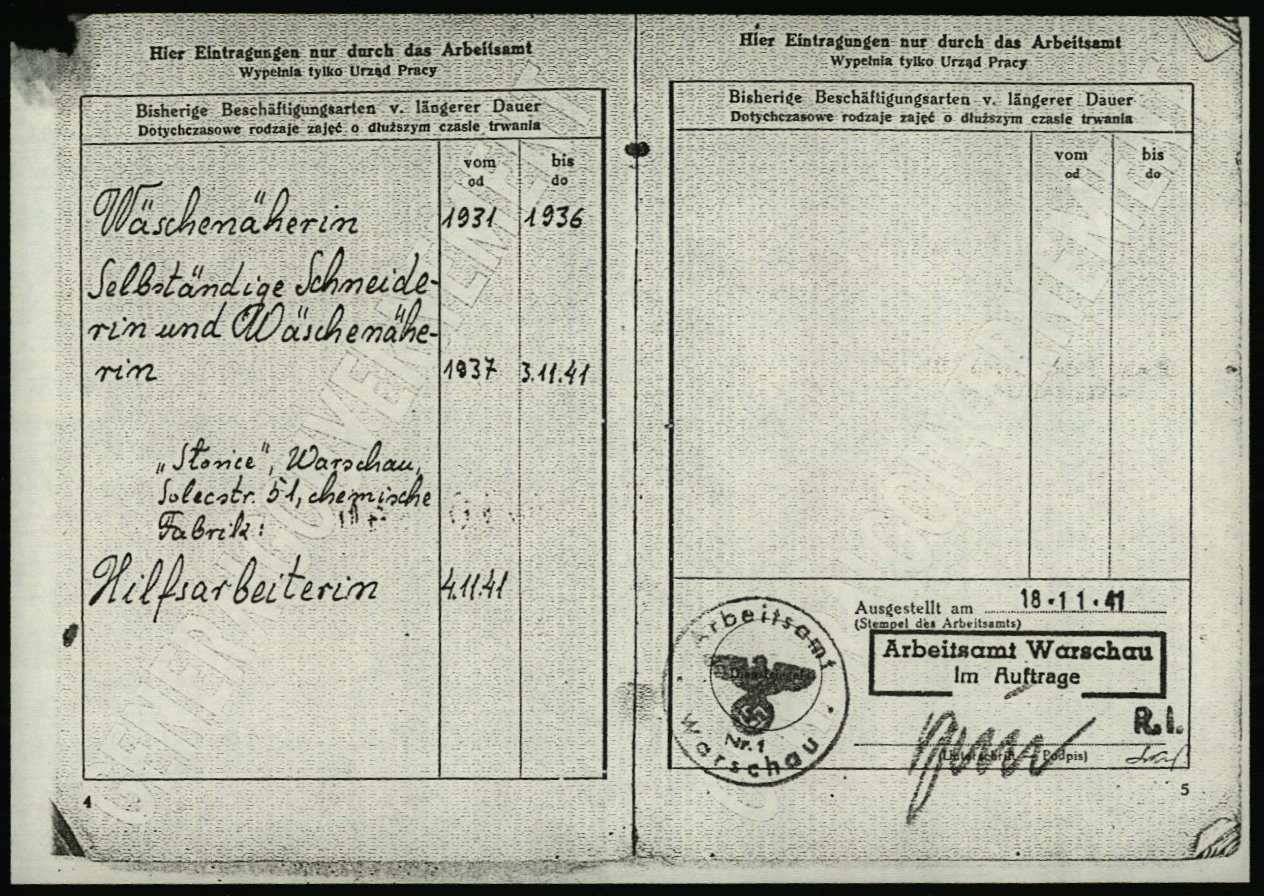 Hier Eintragungen nur durch das Arbeitsamt
Wypełnia tylko Urząd Pracy
Bisherige Beschäftigungsarten v. längerer Dauer
Dotychczasowe rodzaje zajęć o dłuższym czasie trwania
vom bis
od do
Wäschenäherin 1931 1936
Selbständige Schneide-
rin und Wäschenähe-
rin 1937 3.11.41
Warschau,
Solecstr. 51, chemische
Fabrik:
Hilfsarbeiterin 4.11.41
4
Hier Eintragungen nur durch das Arbeitsamt
Wypełnia tylko Urząd Pracy
Bisherige Beschäftigungsarten v. längerer Dauer
Dotychczasowe rodzaje zajęć o dłuższym czasie trwania
vom bis
od do
Ausgestellt am 18·11·41
(Stempel des Arbeitsamts)
Arbeitsamt Warschau
Im Auftrage
R.I.
(Unterschrift — Podpis)
Arbeitsamt
Dienstsiegel
Nr. 1
Warschau
5
GENERALGOUVERNEMENT